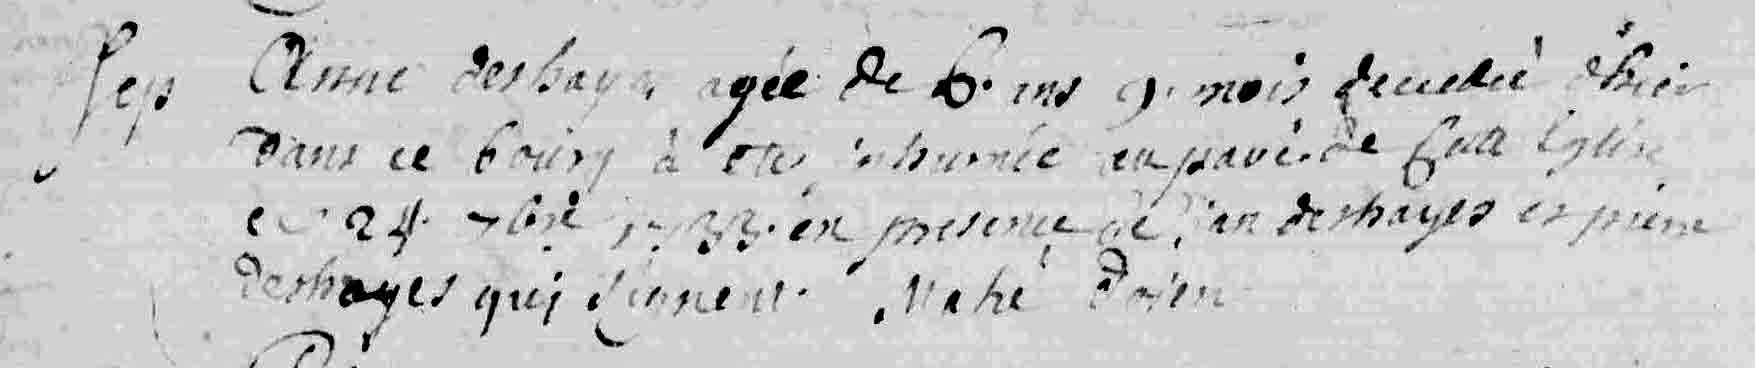 Sep Anne deshayes agée de 6. ans 9. mois decedée d'hier
dans ce bourg à eté inhumée au pavé de cette Eglise
ce 24. 7bre 1733. en presence de Jan deshayes et pierre
deshayes qui signent. Mahé Doien